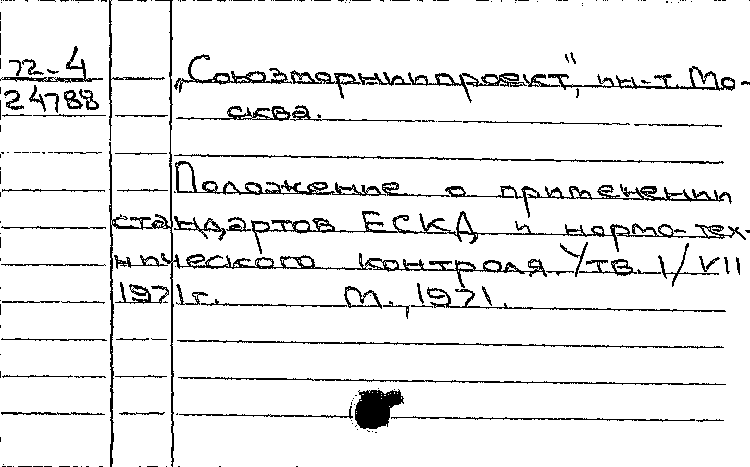 72-4
24788
„Союзморниипроект", ин-т. Мо-
сква.
Положение о применении
стандартов ЕСКД и нормо-тех-
нического контроля. Утв. 1/VII
1971г. М., 1971.